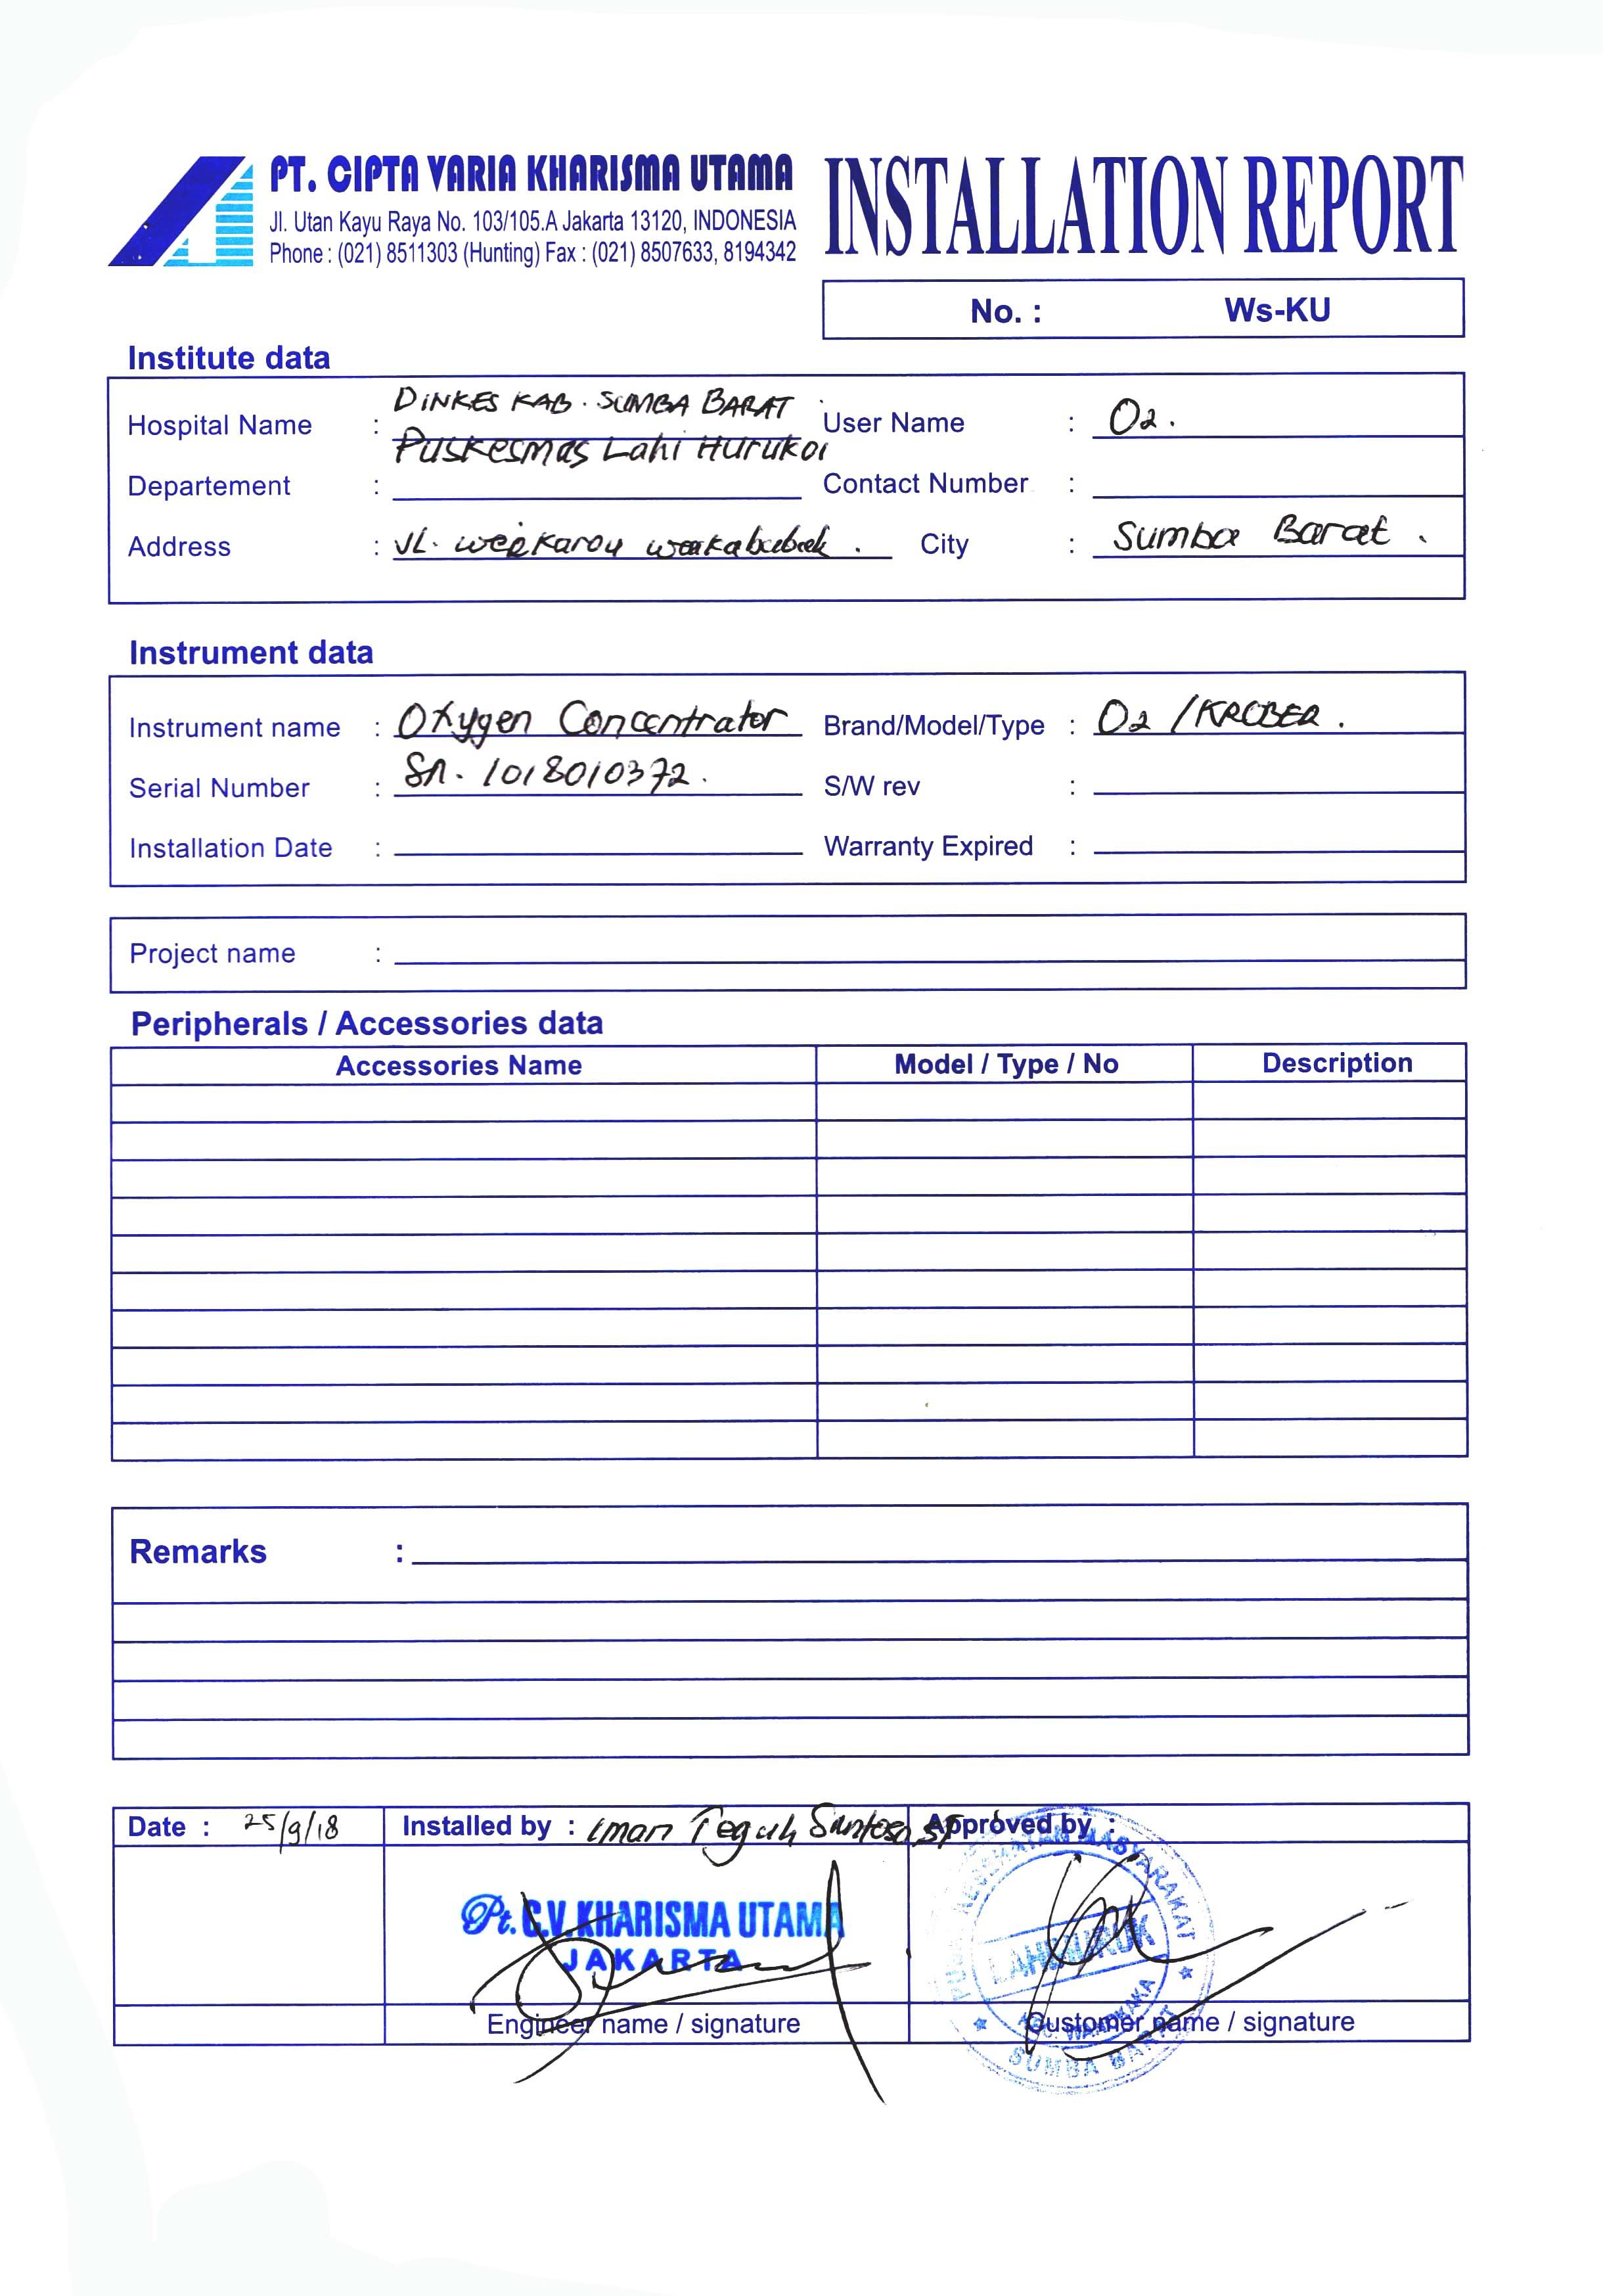 PT. CIPTA VARIA KHARISMA UTAMA
Jl. Utan Kayu Raya No. 103/105.A Jakarta 13120, INDONESIA
Phone : (021) 8511303 (Hunting) Fax : (021) 8507633, 8194342
INSTALLATION REPORT
No. : Ws-KU
Institute data
DINKES KAB. SUMBA BARAT
Hospital Name : Puskesmas Lahi Hurukoi User Name : O2.
Departement : Contact Number :
Address : JL. weekarou waikabubak. City : Sumba Barat.
Instrument data
Instrument name : Oxygen Concentrator Brand/Model/Type : O2 /KROBER.
Serial Number : Sn. 1018010372. S/W rev :
Installation Date : Warranty Expired :
Project name :
Peripherals / Accessories data
Accessories Name Model / Type / No Description
Remarks :
Date : 25/9/18 Installed by : Iman Teguh Santoso, ST Approved by :
Pt. C.V. KHARISMA UTAMA
JAKARTA
KESEHATAN MASYARAKAT
LAHIHURUK
KEC. WANOKAKA
SUMBA BARAT
Engineer name / signature Customer name / signature